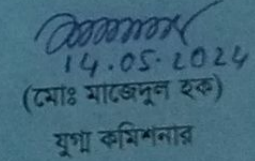 14.05.2024
(মোঃ মাজেদুল হক)
যুগ্ম কমিশনার